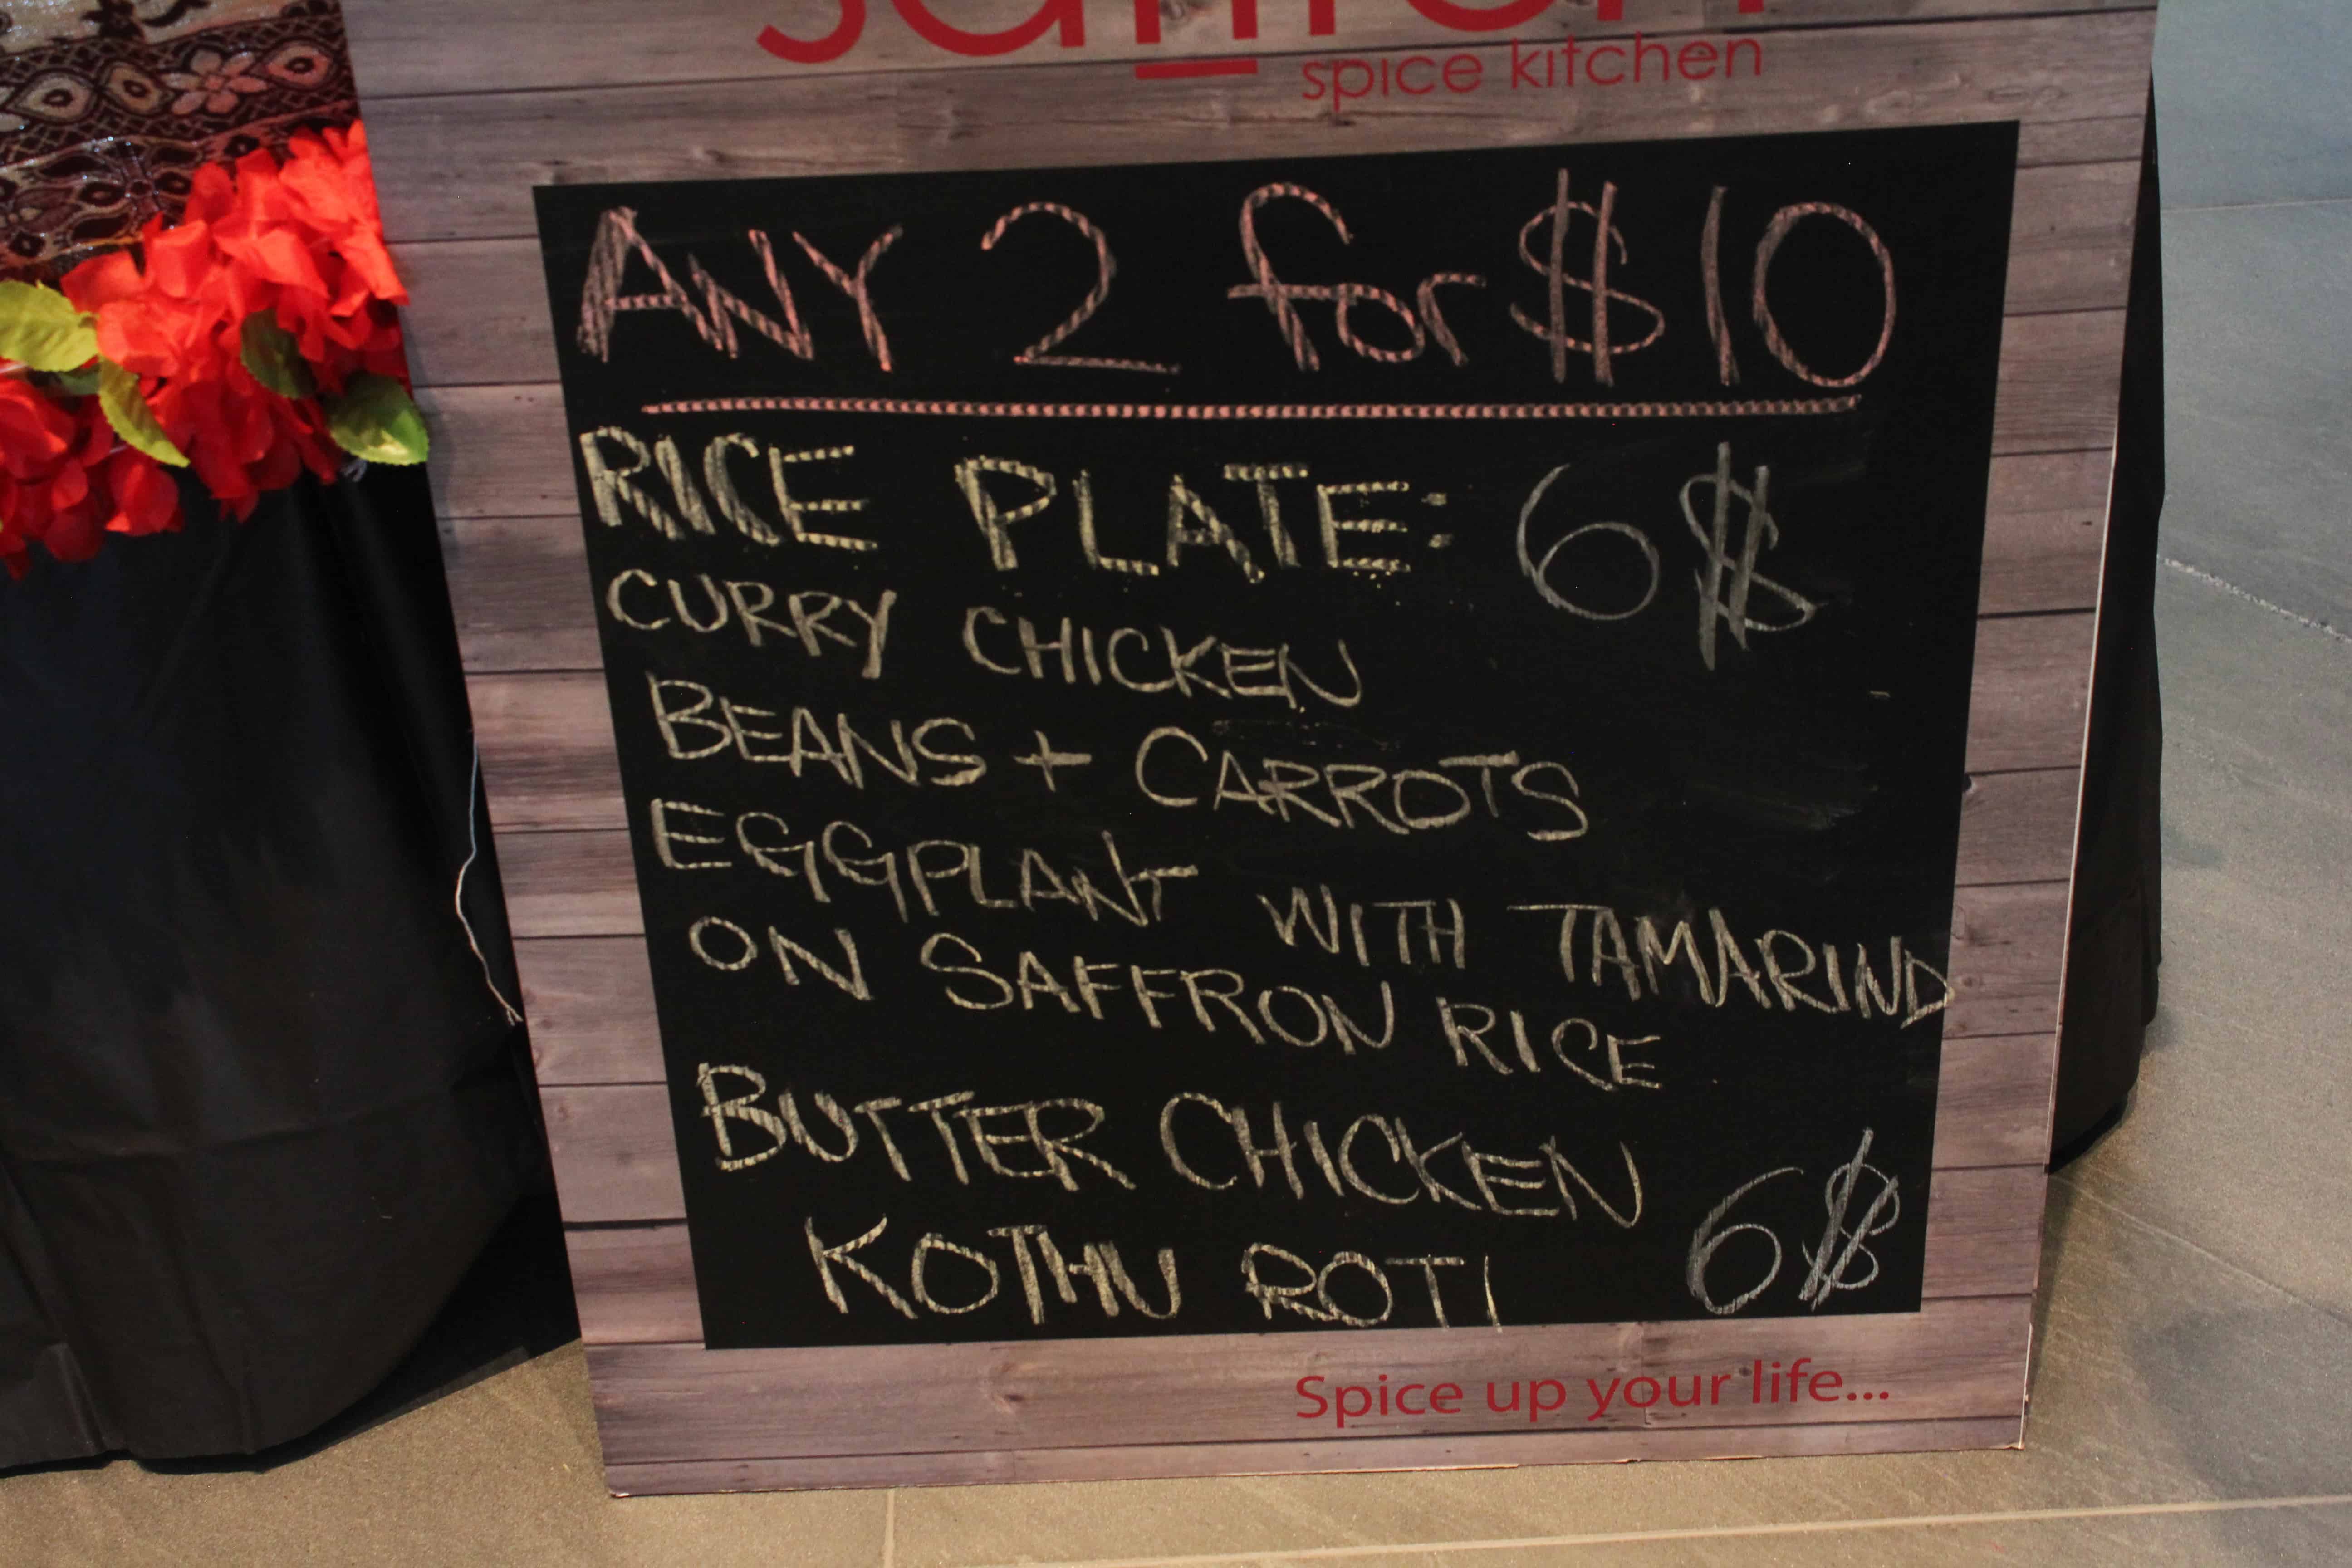 saffron
spice kitchen
ANY 2 for $10
RICE PLATE: 6$
CURRY CHICKEN
BEANS + CARROTS
EGGPLANT WITH TAMARIND
ON SAFFRON RICE
BUTTER CHICKEN
KOTHU ROTI 6$
Spice up your life...